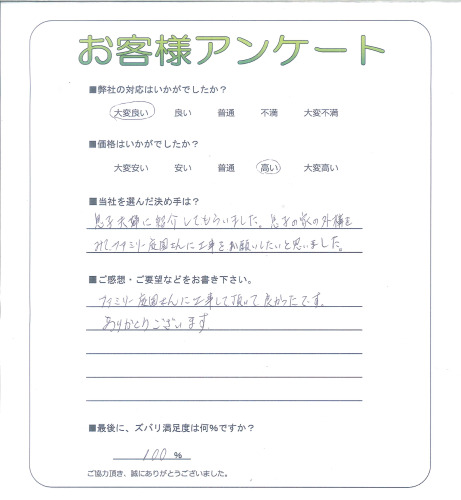 お客様アンケート
■弊社の対応はいかがでしたか？
大変良い 良い 普通 不満 大変不満
■価格はいかがでしたか？
大変安い 安い 普通 高い 大変高い
■当社を選んだ決め手は？
息子夫婦に紹介してもらいました。息子の家の外構を
みてファミリー庭園さんに工事をお願いしたいと思いました。
■ご感想・ご要望などをお書き下さい。
ファミリー庭園さんに工事して頂いて良かったです。
ありがとうございます。
■最後に、ズバリ満足度は何%ですか？
100 %
ご協力頂き、誠にありがとうございました。